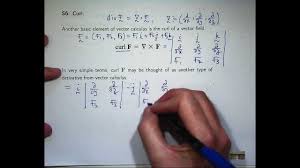 S6. Curl.
div F = ∇ · F , ∇ = (∂/∂x , ∂/∂y , ∂/∂z)
Another basic element of vector calculus is the curl of a vector field
F = (F₁, F₂, F₃) = F₁ i + F₂ j + F₃ k
curl F = ∇ × F = | i j k ; ∂/∂x ∂/∂y ∂/∂z ; F₁ F₂ F₃ |
In very simple terms, curl F may be thought of as another type of
derivative from vector calculus
= i | ∂/∂y ∂/∂z ; F₂ F₃ | - j | ∂/∂x ∂/∂z ; F₁